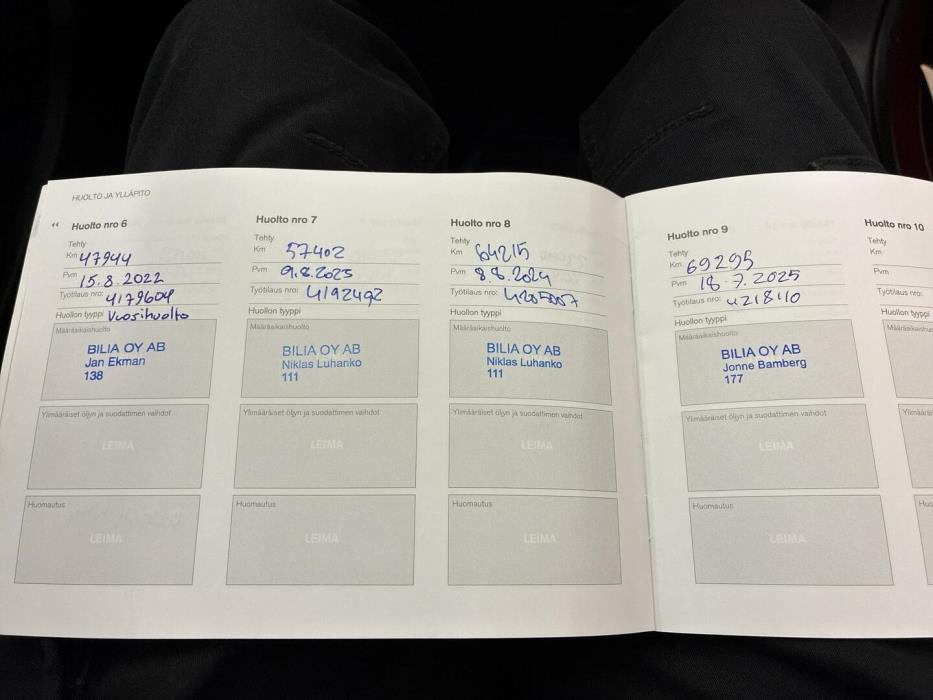 HUOLTO JA YLLÄPITO
“ Huolto nro 6
Tehty
Km 47944
Pvm 15.8.2022
Työtilaus nro: 4179604
Huollon tyyppi Vuosihuolto
Määräaikaishuolto
BILIA OY AB
Jan Ekman
138
Ylimääräiset öljyn ja suodattimen vaihdot
LEIMA
Huomautus
LEIMA
Huolto nro 7
Tehty
Km 57402
Pvm 9.8.2023
Työtilaus nro: 4192492
Huollon tyyppi
Määräaikaishuolto
BILIA OY AB
Niklas Luhanko
111
Ylimääräiset öljyn ja suodattimen vaihdot
LEIMA
Huomautus
LEIMA
Huolto nro 8
Tehty
Km 64215
Pvm 8.8.2024
Työtilaus nro: 4205007
Huollon tyyppi
Määräaikaishuolto
BILIA OY AB
Niklas Luhanko
111
Ylimääräiset öljyn ja suodattimen vaihdot
LEIMA
Huomautus
LEIMA
Huolto nro 9
Tehty
Km 69295
Pvm 18.7.2025
Työtilaus nro: 4218110
Huollon tyyppi
Määräaikaishuolto
BILIA OY AB
Jonne Bamberg
177
Ylimääräiset öljyn ja suodattimen vaihdot
LEIMA
Huomautus
LEIMA
Huolto nro 10
Tehty
Km
Pvm
Työtilaus nro:
Huollon tyyppi